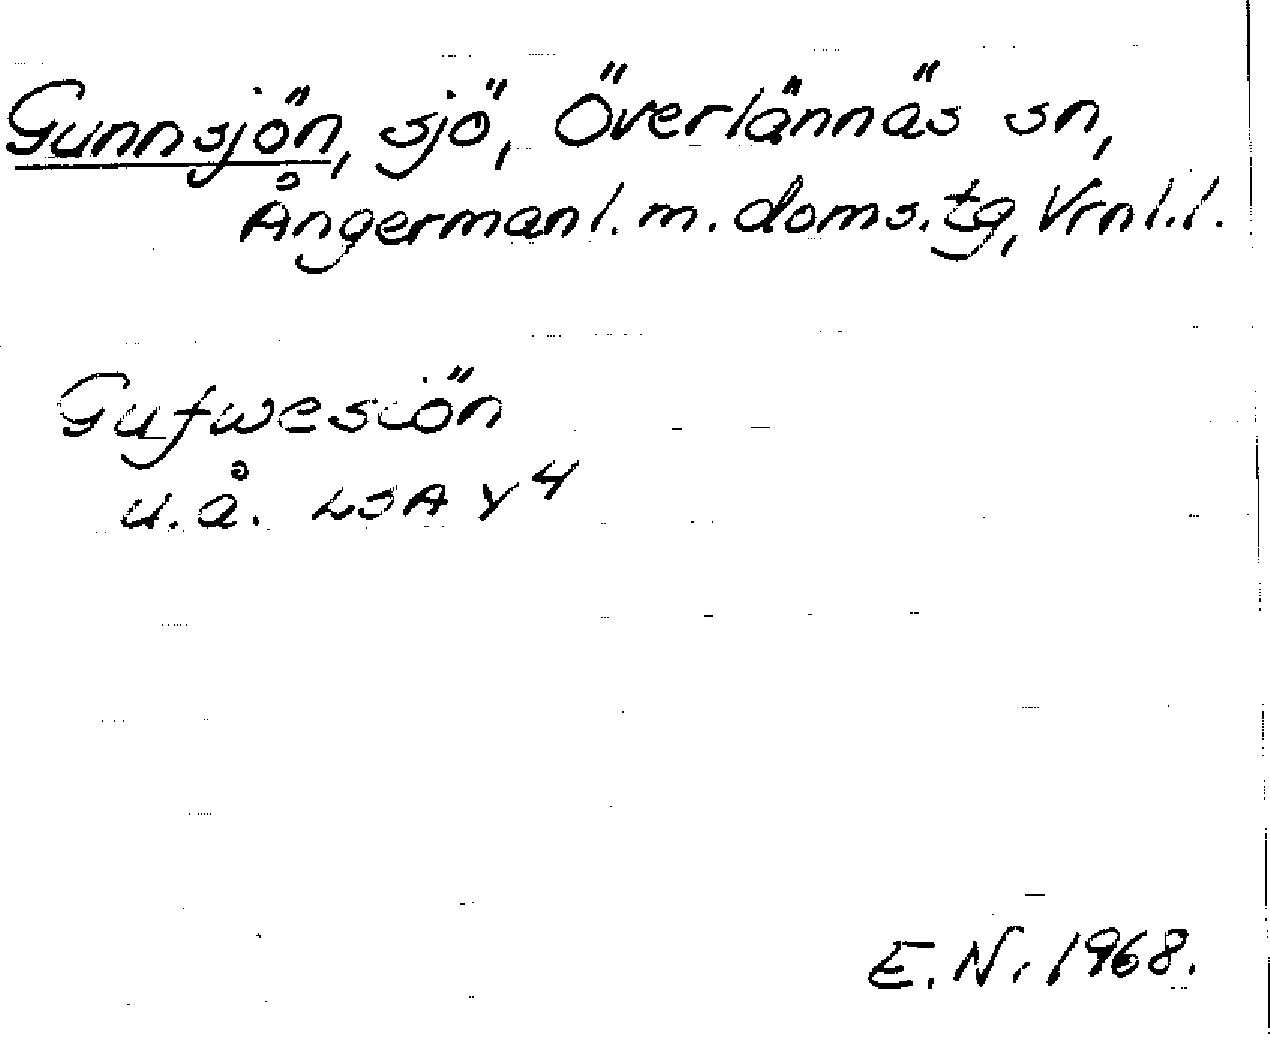 Gunnsjön, sjö, Överlännäs sn,
Ångermanl. m. doms. tg, Vrnl. l.
Gufwesiön
u.å. LSA Y 4
E. N. 1968.